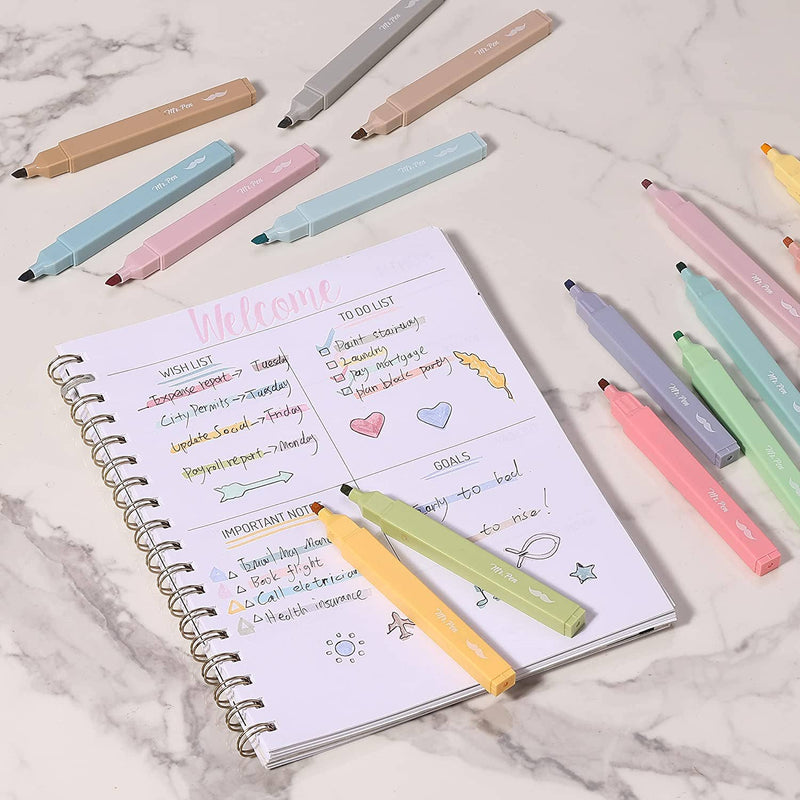 Mr. Pen
Mr. Pen
Mr. Pen
Mr. Pen
Mr. Pen
Mr. Pen
Welcome
WISH LIST
Expense report → Tuesday
City Permits → Tuesday
Update Social → Friday
Payroll report → Monday
TO DO LIST
Paint stairway
Laundry
pay mortgage
plan block party
IMPORTANT NOT
Email May
Book flight
Call eletrician
Health insurance
GOALS
Early to bed.
to rise!
Mr. Pen
Mr. Pen
Mr. Pen
Mr. Pen
Mr. Pen
Mr. Pen
Mr. Pen